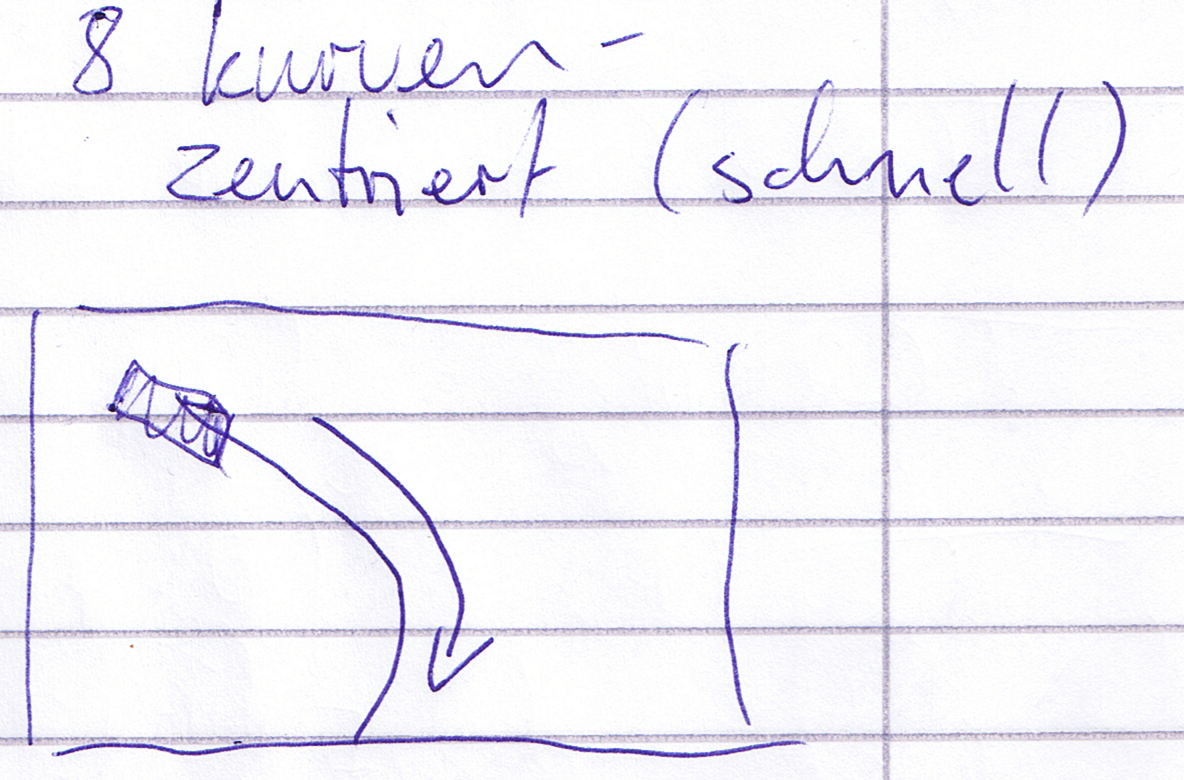 8 kurven-
zentriert (schnell)